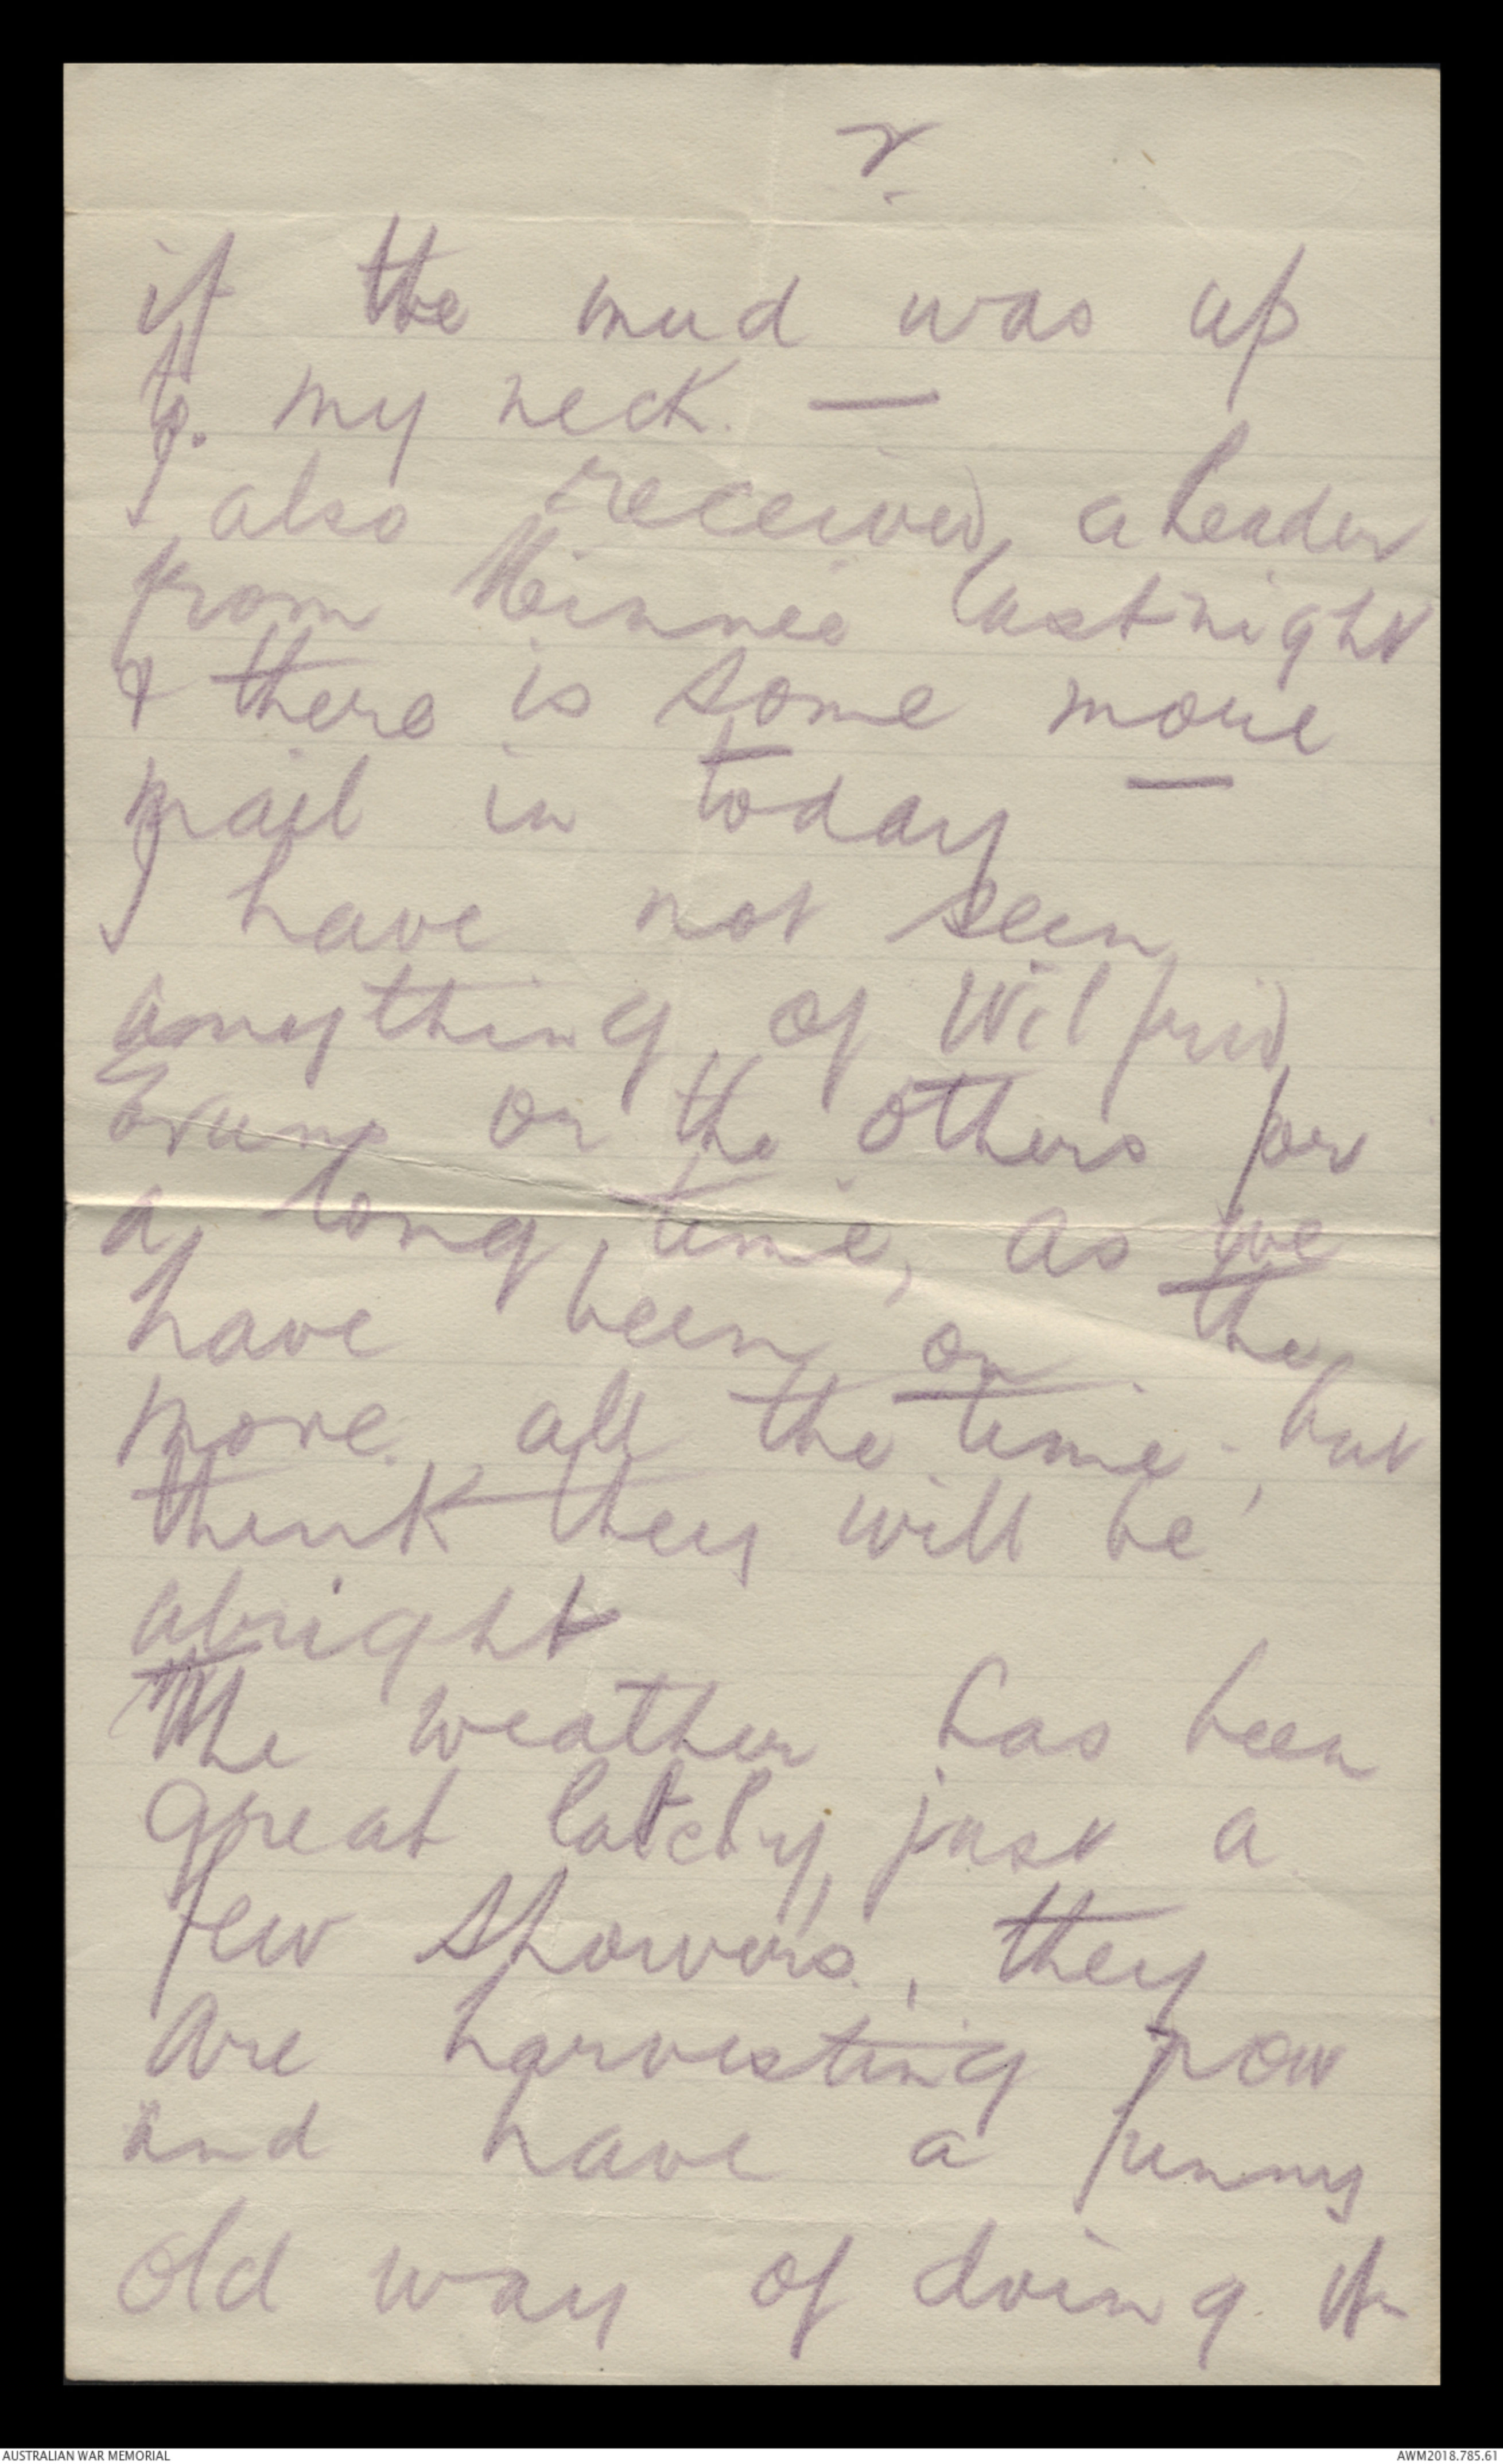 2.
if the mud was up
to. my neck. —
I also received a Leader
from Minnie last night
& there is some more
mail in today —
I have not seen
anything of Wilfrid
Evans or the others for
a long time, as we
have been on the
move all the time, but
think they will be
alright
The weather has been
great lately, just a
few showers, they
are harvesting now
and have a funny
old way of doing it
AUSTRALIAN WAR MEMORIAL
AWM2018.785.61